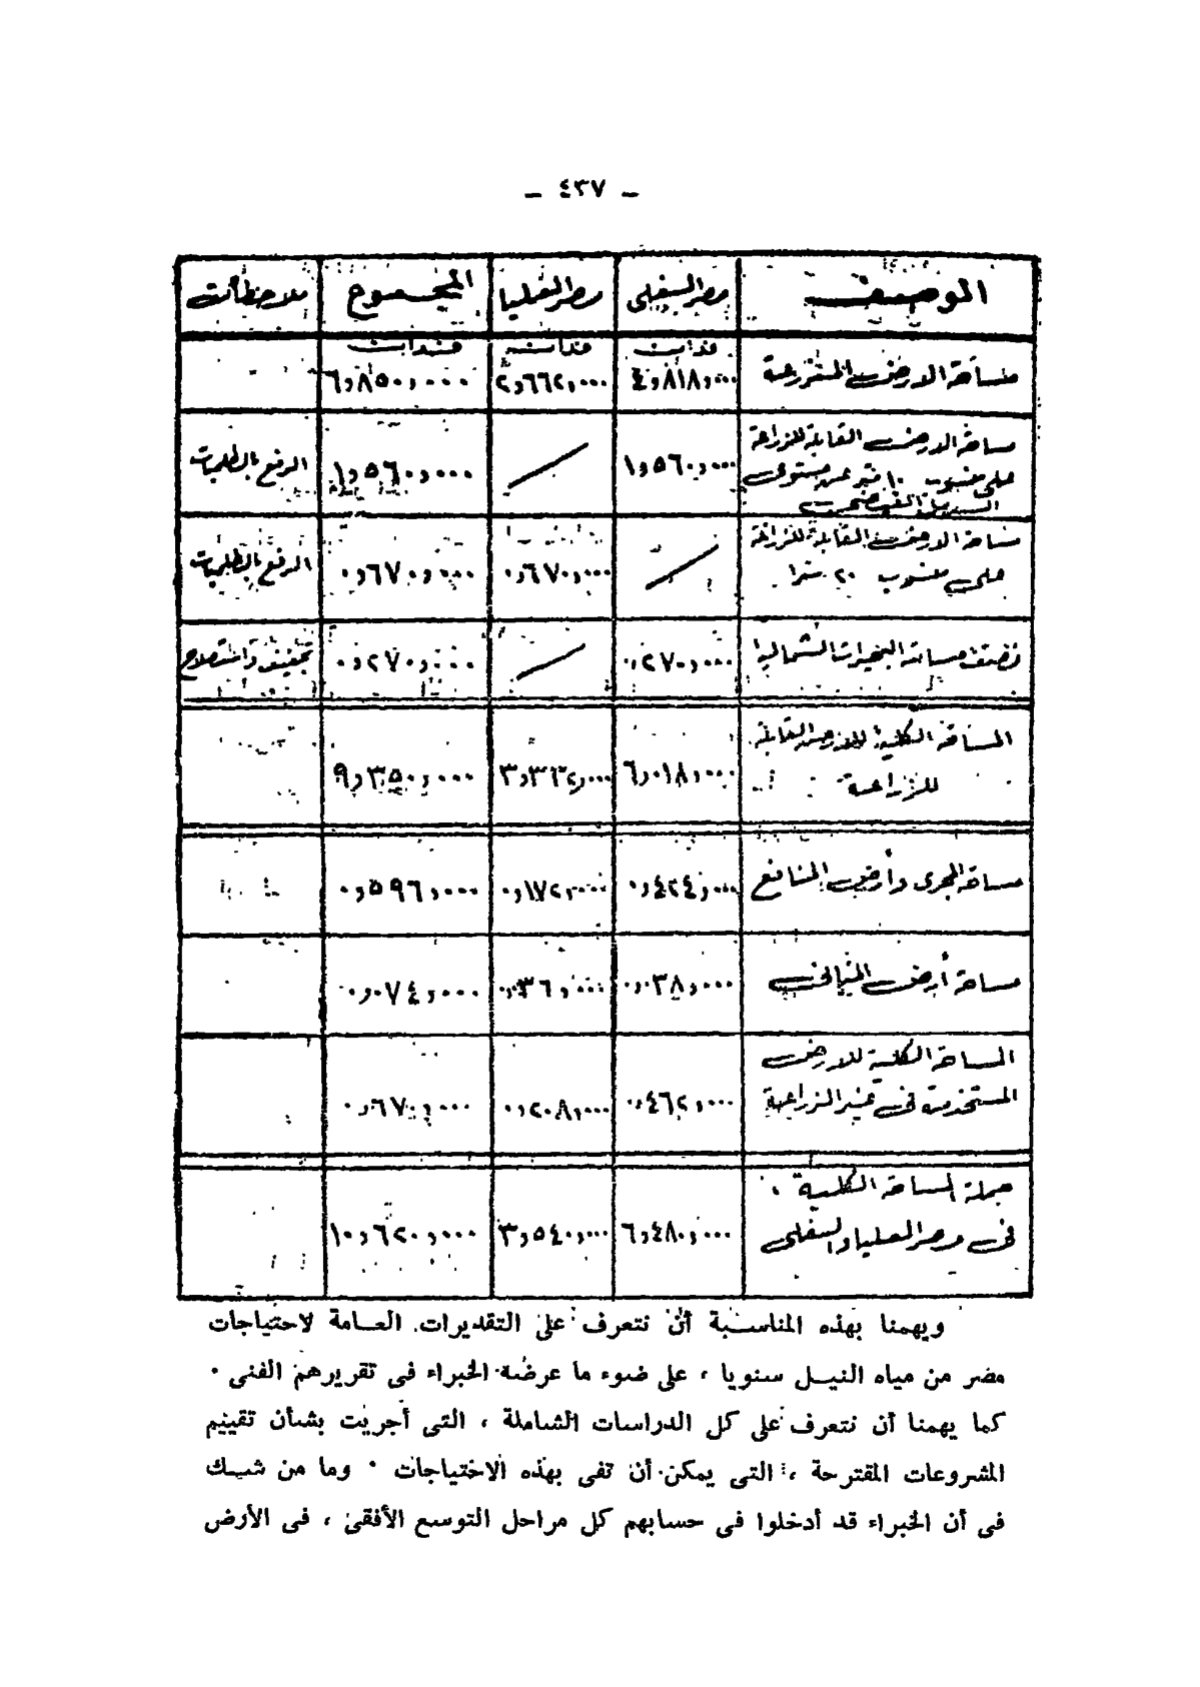 ـ ٤٣٧ ـ
الوصف مصر السفلى مصر العليا المجموع ملاحظات
فدان فدان فدان
مساحة الارض المنزرعة ٤٫٨١٨٫٠٠٠ ٢٫٦٦٢٫٠٠٠ ٦٫٨٥٠٫٠٠٠
مساحة الارض القابلة للزراعة ١٫٥٦٠٫٠٠٠ ⁄ ١٫٥٦٠٫٠٠٠ الرفع بالطلمبات
على منسوب ١٠ متر عن مستوى
مساحة الارض القابلة للزراعة ⁄ ٠٫٦٧٠٫٠٠٠ ٠٫٦٧٠٫٠٠٠ الرفع بالطلمبات
على منسوب ٢٠ مترا
نصف مساحة البحيرات الشمالية ٠٫٢٧٠٫٠٠٠ ⁄ ٠٫٢٧٠٫٠٠٠ تجفيف واستصلاح
المساحة الكلية للارض القابلة
للزراعة ٦٫٠١٨٫٠٠٠ ٣٫٣٣٢٫٠٠٠ ٩٫٣٥٠٫٠٠٠
مساحة المجرى وأرض المنافع ٠٫٤٢٤٫٠٠٠ ٠٫١٧٢٫٠٠٠ ٠٫٥٩٦٫٠٠٠
مساحة أرض المبانى ٠٫٠٣٨٫٠٠٠ ٠٫٠٣٦٫٠٠٠ ٠٫٠٧٤٫٠٠٠
المساحة الكلية للارض
المستخدمة فى غير الزراعة ٠٫٤٦٢٫٠٠٠ ٠٫٢٠٨٫٠٠٠ ٠٫٦٧٠٫٠٠٠
جملة المساحة الكلية
فى مصر العليا والسفلى ٦٫٤٨٠٫٠٠٠ ٣٫٥٤٠٫٠٠٠ ١٠٫٦٢٠٫٠٠٠
ويهمنا بهذه المناسبة أن نتعرف على التقديرات العامة لاحتياجات
مصر من مياه النيل سنويا ، على ضوء ما عرضه الخبراء فى تقريرهم الفنى ٠
كما يهمنا أن نتعرف على كل الدراسات الشاملة ، التى أجريت بشأن تقييم
المشروعات المقترحة ، التى يمكن أن تفى بهذه الاحتياجات ٠ وما من شك
فى أن الخبراء قد أدخلوا فى حسابهم كل مراحل التوسع الأفقى ، فى الأرض